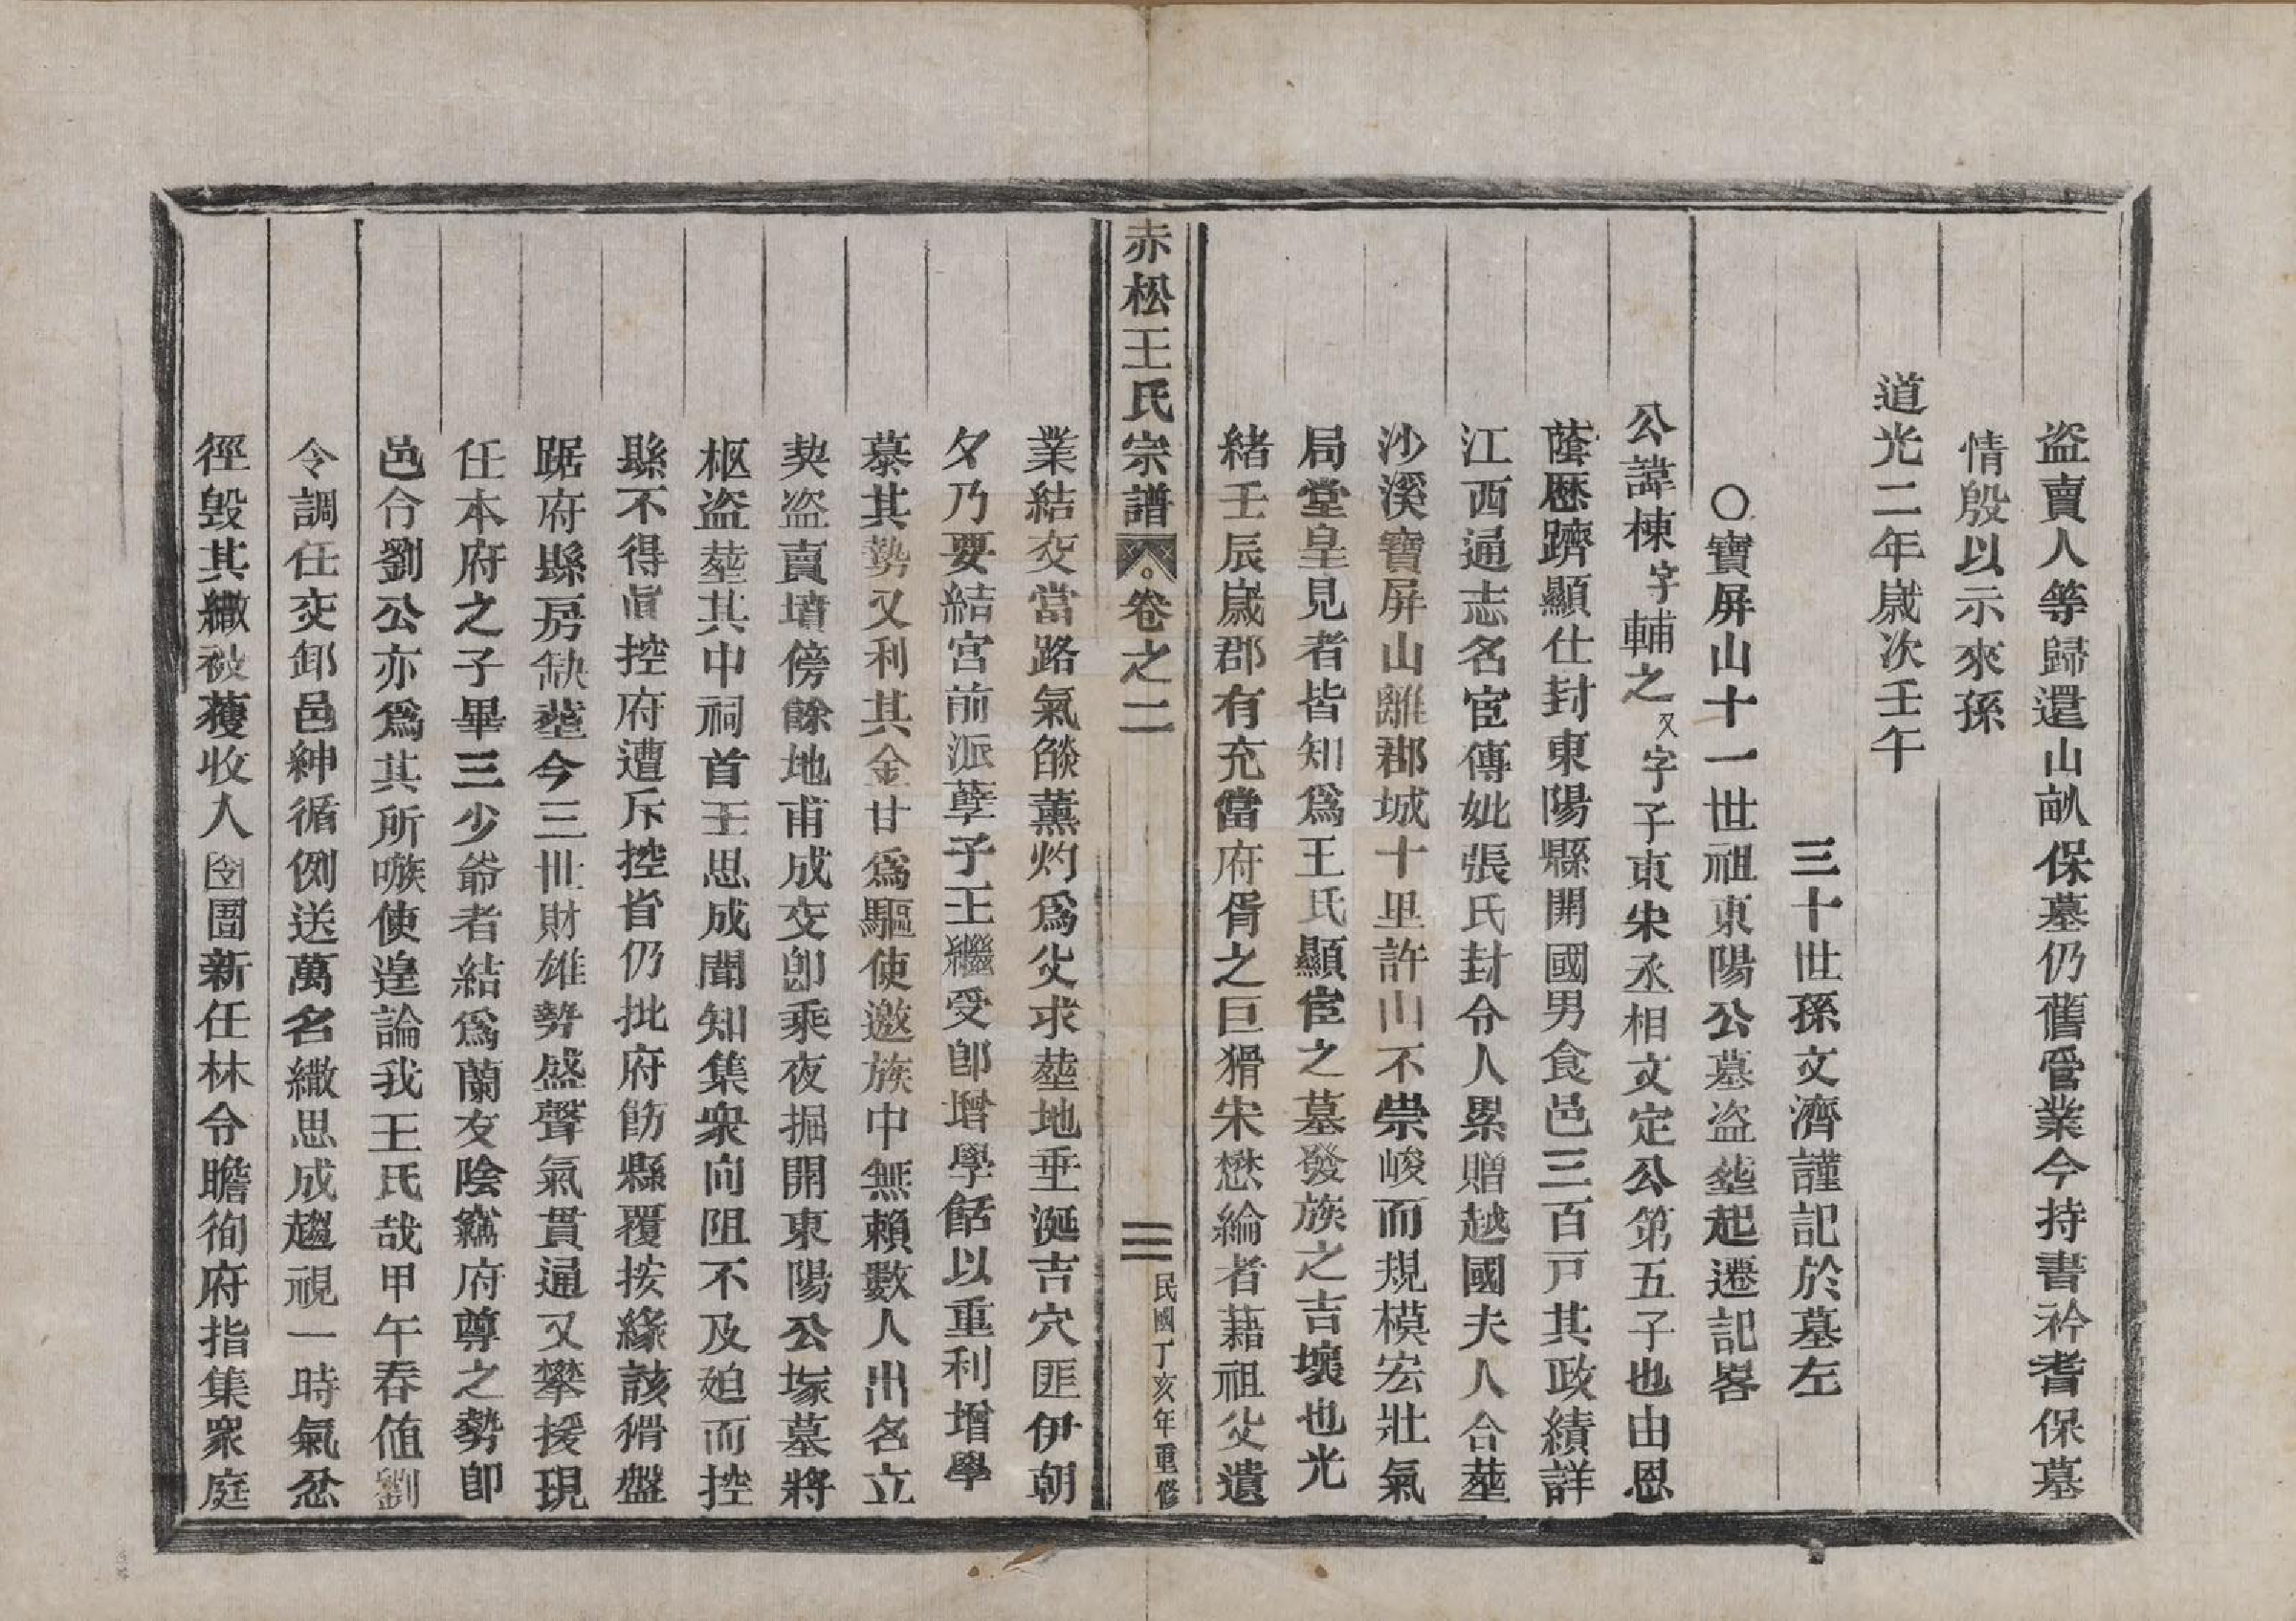 盜賣人等歸還山畝保墓仍舊管業今持書衿耆保墓
情殷以示來孫
道光二年歲次壬午
三十世孫文濟謹記於墓左
○寶屏山十一世祖東陽公墓盜塟起遷記畧
公諱棟字輔之又字子東宋丞相文定公第五子也由恩
蔭歷躋顯仕封東陽縣開國男食邑三百戸其政績詳
江西通志名宦傳妣張氏封令人累贈越國夫人合塟
沙溪寶屏山離郡城十里許山不崇峻而規模宏壯氣
局堂皇見者皆知爲王氏顯宦之墓發族之吉壤也光
緒壬辰歲郡有充當府胥之巨猾宋懋綸者藉祖父遺
赤松王氏宗譜 卷之二 三 民國丁亥年重修
業結交當路氣燄薰灼爲父求塟地垂涎吉穴匪伊朝
夕乃要結宮前派孽子王繼受卽增學餂以重利增學
慕其勢又利其金甘爲驅使邀族中無賴數人出名立
契盜賣墳傍餘地甫成交卽乘夜掘開東陽公塚墓將
柩盜塟其中祠首王思成聞知集衆向阻不及廹而控
縣不得直控府遭斥控省仍批府飭縣覆按緣該猾盤
踞府縣房缺塟今三世財雄勢盛聲氣貫通又攀援現
任本府之子畢三少爺者結爲蘭友陰竊府尊之勢卽
邑令劉公亦爲其所嗾使遑論我王氏哉甲午春値劉
令調任交卸邑紳循例送萬名繖思成趨視一時氣忿
徑毀其繖被獲收人囹圄新任林令瞻徇府指集衆庭